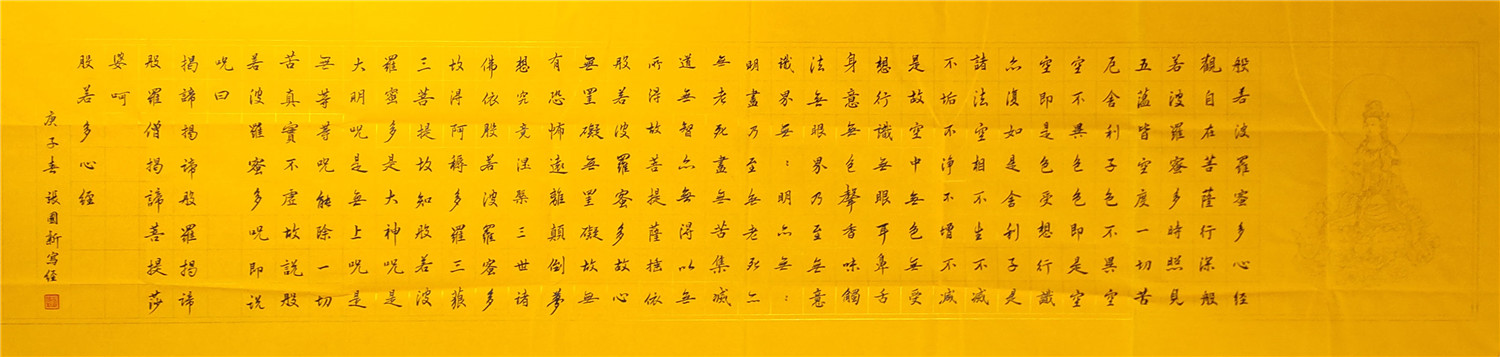 般若波羅蜜多心經
觀自在菩薩行深般
若波羅蜜多時照見
五蘊皆空度一切苦
厄舍利子色不異空
空不異色色即是空
空即是色受想行識
亦復如是舍利子是
諸法空相不生不滅
不垢不淨不增不減
是故空中無色無受
想行識無眼耳鼻舌
身意無色聲香味觸
法無眼界乃至無意
識界無：明亦無：
明盡乃至無老死亦
無老死盡無苦集滅
道無智亦無得以無
所得故菩提薩埵依
般若波羅蜜多故心
無罣礙無罣礙故無
有恐怖遠離顛倒夢
想究竟涅槃三世諸
佛依般若波羅蜜多
故得阿耨多羅三藐
三菩提故知般若波
羅蜜多是大神呪是
大明呪是無上呪是
無等等呪能除一切
苦真實不虛故說般
若波羅蜜多呪即說
呪曰
揭諦揭諦般羅揭諦
般羅僧揭諦菩提莎
婆呵
般若多心經
庚子春 張國新寫經